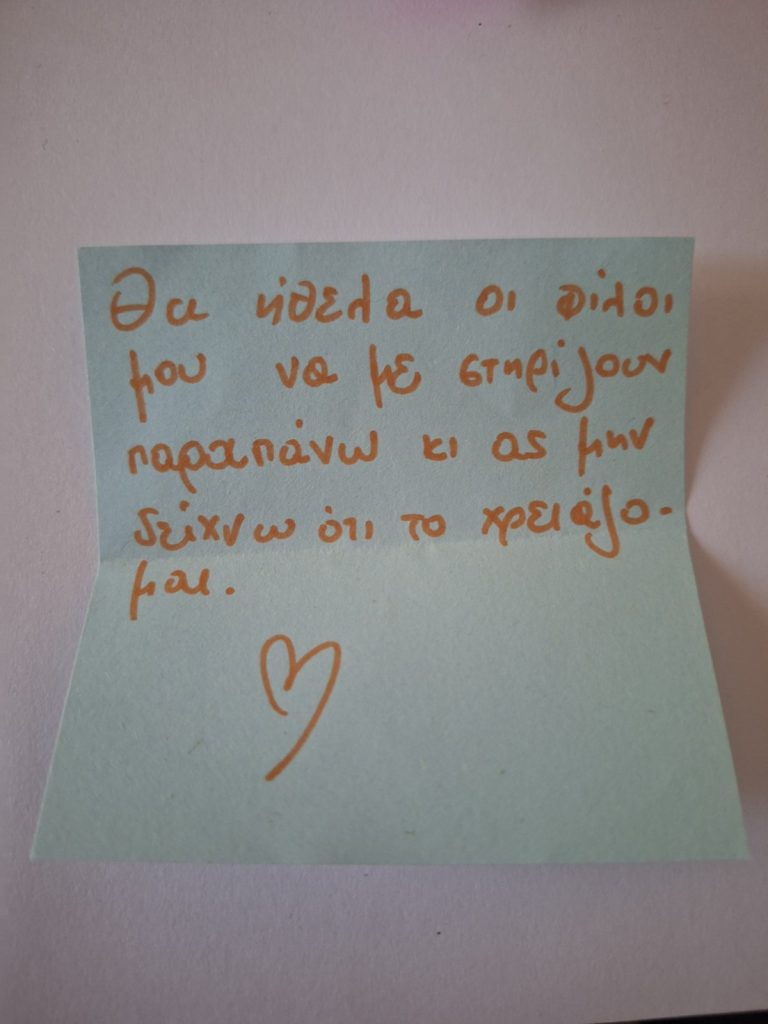 Θα ήθελα οι φίλοι
μου να με στηρίζουν
παραπάνω κι ας μην
δείχνω ότι το χρειάζο-
μαι.